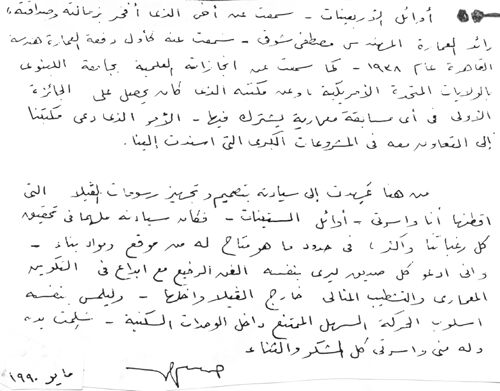 أوائل الأربعينات - سمعت عن أخى الذى أفخر بزمالته وصداقته،
رائد العمارة المهندس مصطفى شوقى - سمعت عنه كأول دفعة العمارة هندسة
القاهرة عام ١٩٣٨ - كما سمعت عن انجازاته العلمية بجامعة الينوى
بالولايات المتحدة الأمريكية، وعن مكتبه الذى كان يحصل على الجائزة
الأولى فى أى مسابقة معمارية يشترك فيها - الأمر الذى دعى مكتبنا
إلى التعاون معه فى المشروعات الكبرى التى اسندت إلينا.
من هنا عهدت إلى سيادته بتصميم وتجهيز رسومات الڤيلا التى
اقطنها أنا واسرتى - أوائل الستينات - فكان سيادته ملهما فى تحقيق
كل رغباتنا وأكثر، فى حدود ما هو متاح له من موقع ومواد بناء -
وانى ادعو كل صديق ليرى بنفسه الفن الرفيع مع ابداع فى التكوين
المعمارى والتشطيب المثالى خارج الڤيلا وداخلها - وليلمس بنفسه
اسلوب الحركة السهل الممتنع داخل الوحدات السكنية - سلمت يده
وله منى واسرتى كل الشكر والثناء
مايو ١٩٩٠